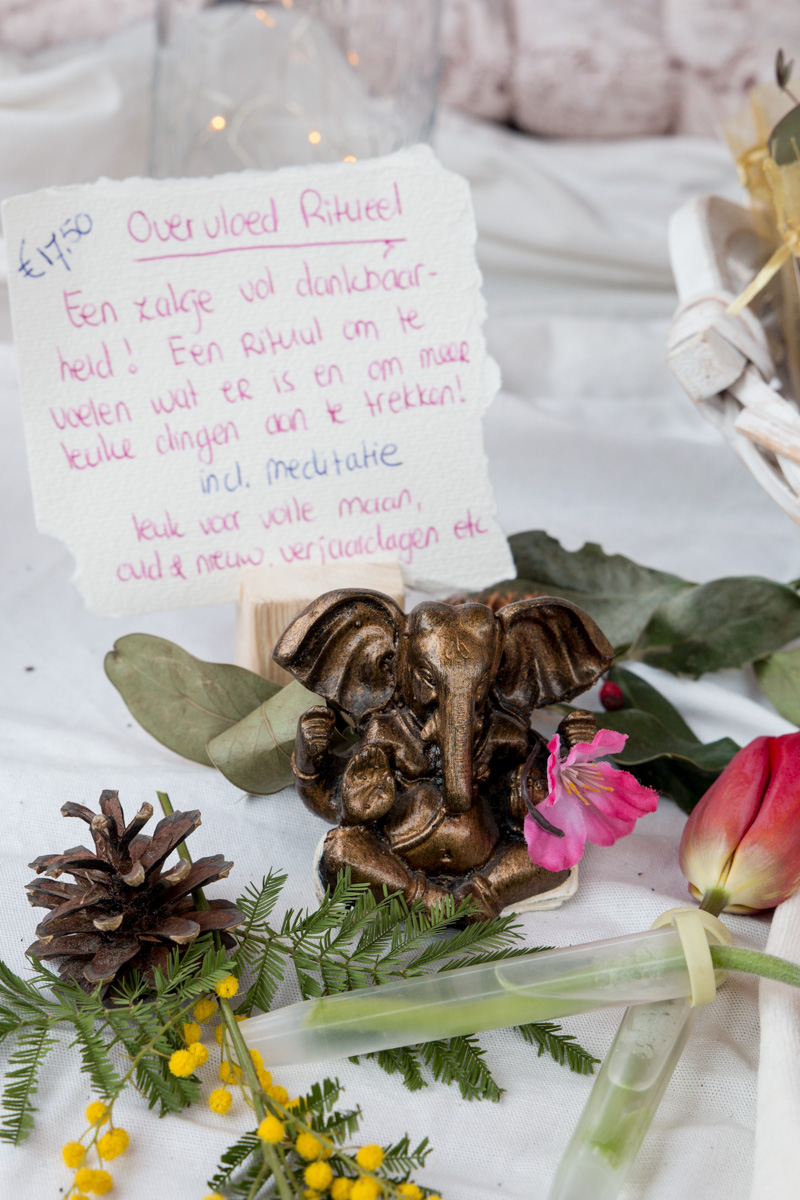 €17,50
Overvloed Ritueel
Een zakje vol dankbaar-
heid! Een Ritual om te
voelen wat er is en om meer
leuke dingen aan te trekken!
incl. meditatie
leuk voor volle maan,
oud & nieuw, verjaardagen etc